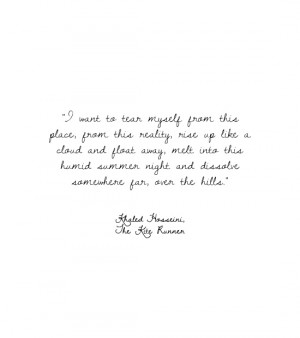 "I want to tear myself from this
place, from this reality, rise up like a
cloud and float away, melt into this
humid summer night and dissolve
somewhere far, over the hills."
Khaled Hosseini,
The Kite Runner